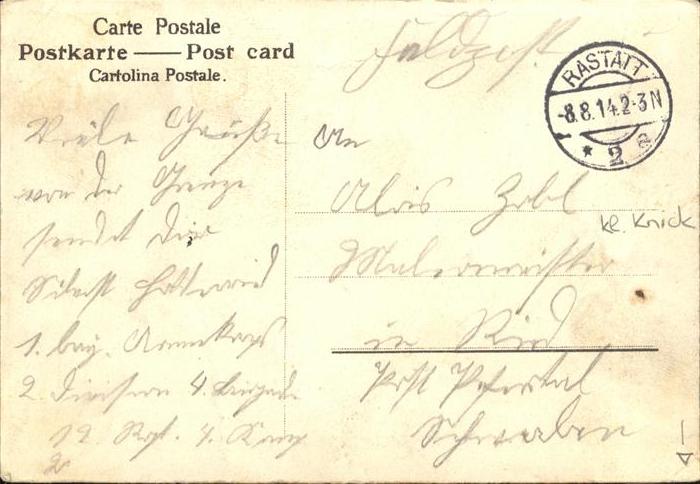 Carte Postale
Postkarte — Post card
Cartolina Postale.
Feldpost
RASTATT
-8.8.14.2-3N
* 2 a
Viele Grüße
von der Grenze
sendet Dir
1. bay. Armeekorps
2. Division 4. Brigade
12. Rgt. 4. Komp
An
Alois Zobl
kl. Knick
Malermeister
in Ried
Post Pfertal
Schwaben